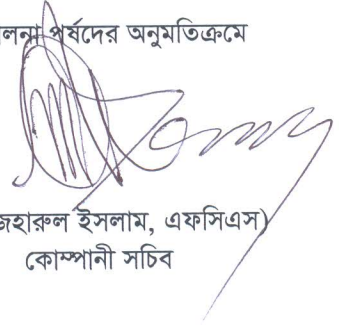 পর্ষদের অনুমতিক্রমে
ইসলাম, এফসিএস)
কোম্পানী সচিব